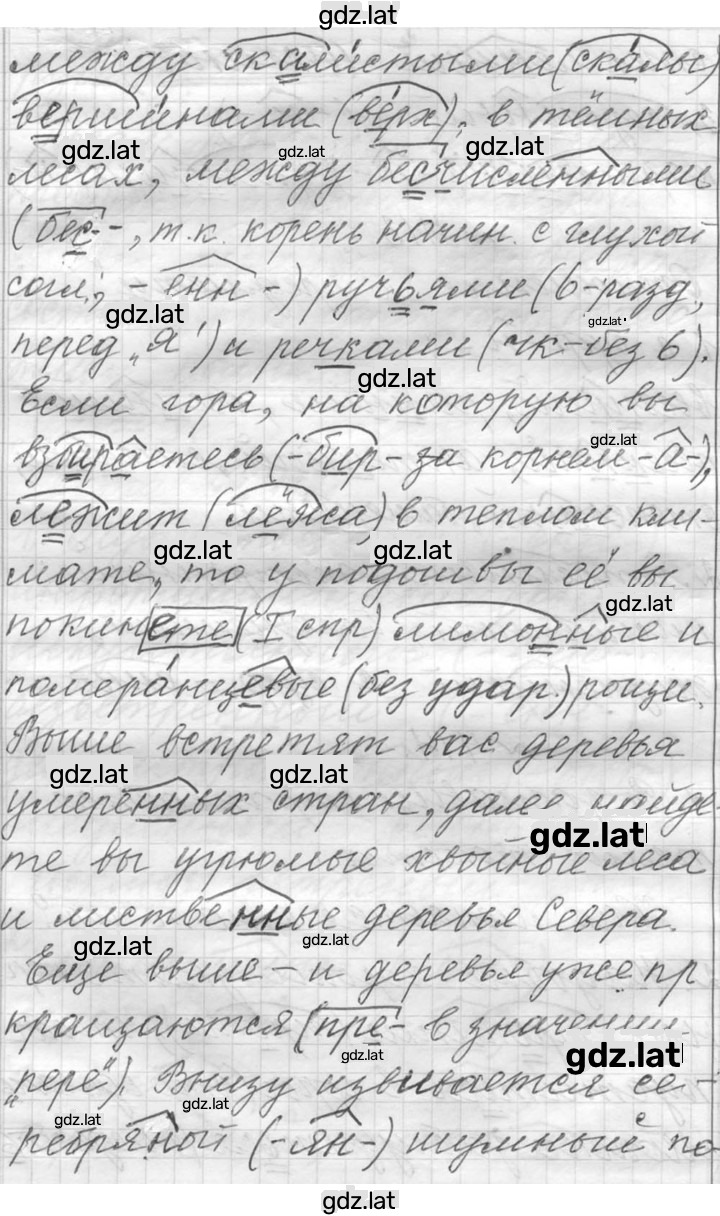 gdz.lat
между скалистыми (ска́лы)
верши́нами (ве́рх), в тёмных
gdz.lat gdz.lat gdz.lat
лесах, между бесчисленными
(бес-, т.к. корень начин. с глухой
согл; -енн-) ручьями (ь-разд,
gdz.lat gdz.lat
перед „я") и речками (чк-без ь).
gdz.lat
Если гора, на которую вы
gdz.lat
взбираетесь (-бир- за корнем -а-),
лежит (лёжа) в теплом кли-
gdz.lat gdz.lat
мате, то у подошвы её вы
gdz.lat
покинете (I спр) лимонные и
помера́нцевые (без удар.) рощи.
Выше встретят вас деревья
gdz.lat gdz.lat
умеренных стран, далее найде
gdz.lat
те вы угрюмые хвойные леса
и лиственные деревья Севера.
gdz.lat gdz.lat
Еще выше – и деревья уже пр
кращаются (пре- в значении
gdz.lat gdz.lat
„пере"). Внизу извивается се-
gdz.lat gdz.lat
ребряной (-ян-) шумные по
gdz.lat